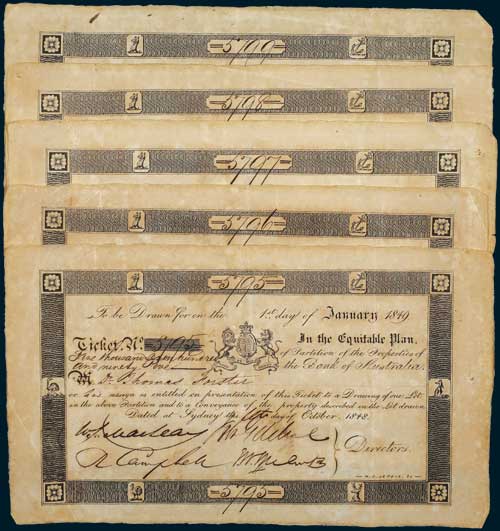 5799
5798
5797
5796
5795
To be Drawn for on the 1st day of January 1849
Ticket, No. 5795 In the Equitable Plan,
Five thousand seven hundred of Partition of the Properties of
and ninety five the Bank of Australia.
Mr Thomas Forster
or his assigns is entitled on presentation of this Ticket to a Drawing of one Lot
in the above Partition and to a Conveyance of the property described in the Lot drawn
Dated at Sydney the day of October, 1848.
Macleay
R Campbell
Directors.
5795